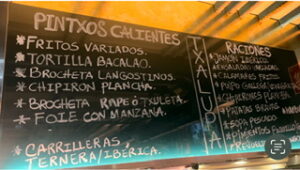 PINTXOS CALIENTES
*FRITOS VARIADOS.
*TORTILLA BACALAO.
*BROCHETA LANGOSTINOS.
*CHIPIRON PLANCHA.
*BROCHETA RAPE Ó TXULETA.
*FOIE CON MANZANA.
*CARRILLERAS,
TERNERA/IBERICA.
TXALUPA
RACIONES
*JAMON IBERICO.
*ENSALADILLA
*CALAMARES FRITOS
*PULPO GALLEGO
*CHIPIRONES PLANCHA
*PATATAS BRAVAS
*SOPA PESCADO
*PIMIENTOS